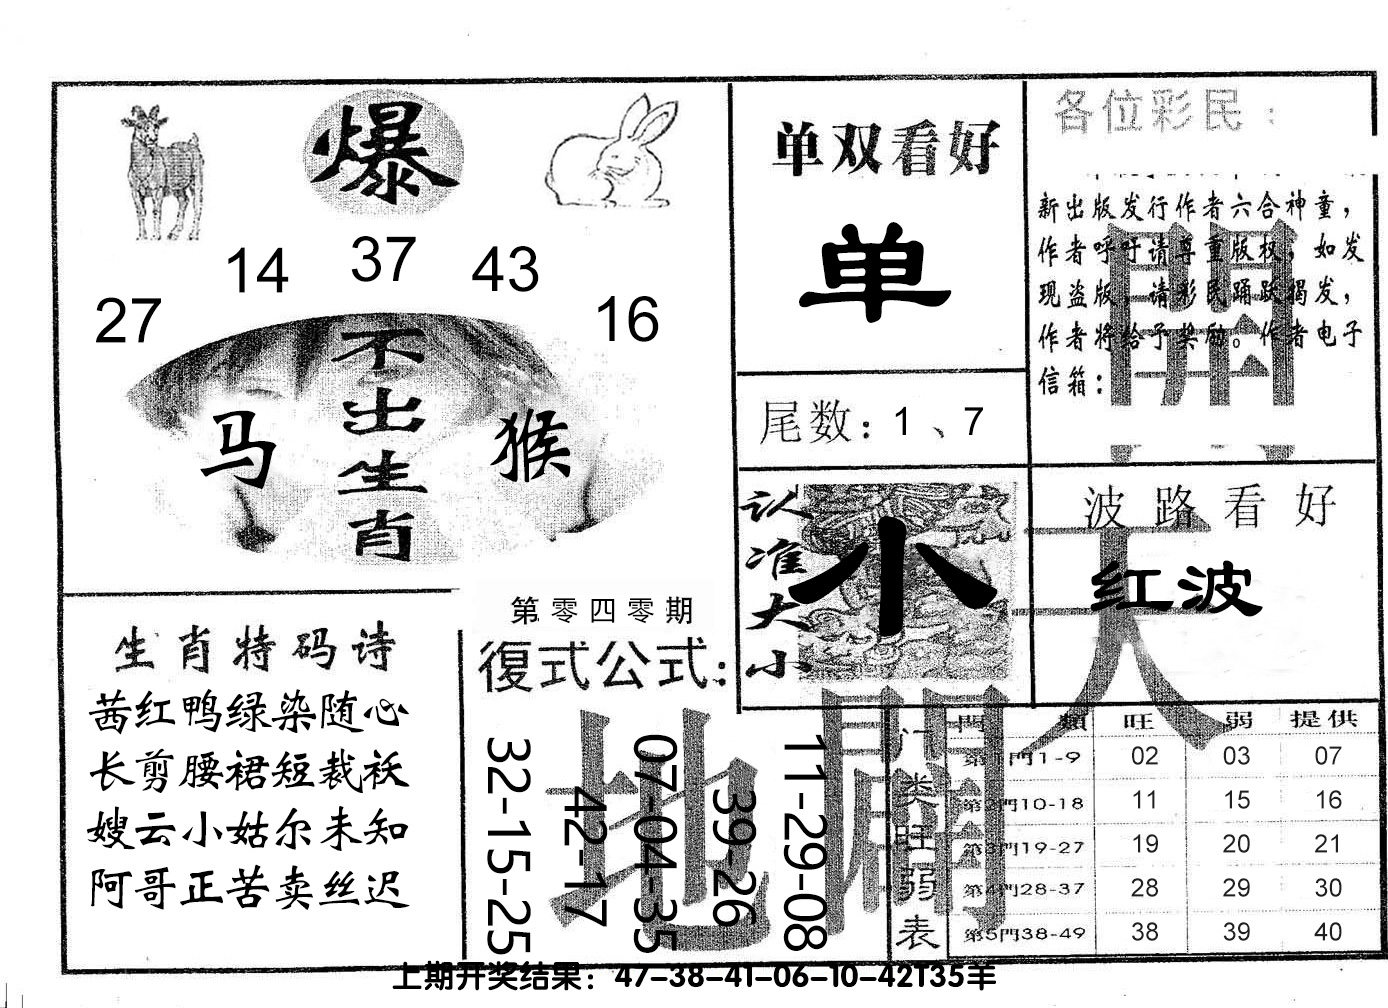 爆
27 14 37 43 16
不出生肖
马 猴
生肖特码诗
茜红鸭绿染随心
长剪腰裙短裁袄
嫂云小姑尔未知
阿哥正苦卖丝迟
第零四零期
復式公式:
32-15-25
42-17
07-04-35
39-26
11-29-08
单双看好
单
尾数: 1、7
认准大小
小
各位彩民:
新出版发行作者六合神童，
作者呼吁请尊重版权，如发
现盗版，请彩民踊跃揭发，
作者将给予奖励。作者电子
信箱：
波路看好
红波
天
地
開
開
门类旺弱表
門類 旺 弱 提供
第1門1-9 02 03 07
第2門10-18 11 15 16
第3門19-27 19 20 21
第4門28-37 28 29 30
第5門38-49 38 39 40
上期开奖结果：47-38-41-06-10-42T35羊